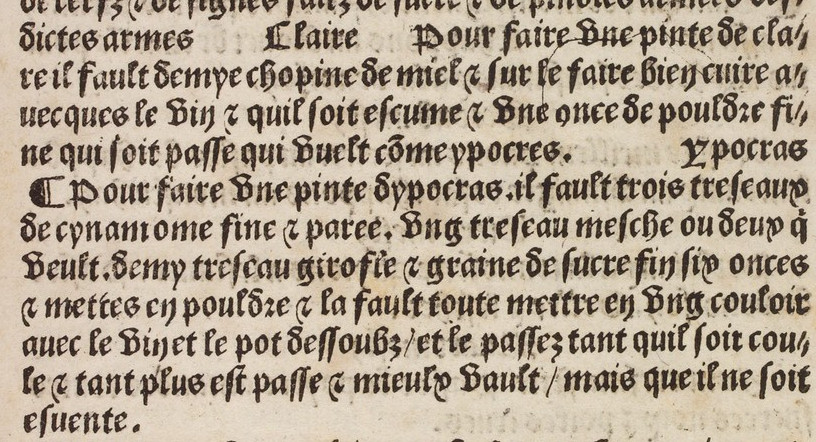 dictes armes Claire Pour faire vne pinte de cla⸗
re il fault demye chopine de miel ⁊ sur le faire bien cuire a⸗
uecques le vin ⁊ quil soit escume ⁊ vne once de pouldre fi⸗
ne qui soit passe qui vuelt cõme ypocres. Ypocras
¶ Pour faire vne pinte dypocras.il fault trois treseaux
de cynamome fine ⁊ paree. vng treseau mesche ou deux q̇
veult.demy treseau girofle ⁊ graine de sucre fin six onces
⁊ mettes en pouldre ⁊ la fault toute mettre en vng couloir
auec le vin et le pot dessoubz/et le passez tant quil soit cou⸗
le ⁊ tant plus est passe ⁊ mieulx vault / mais que il ne soit
esuente.